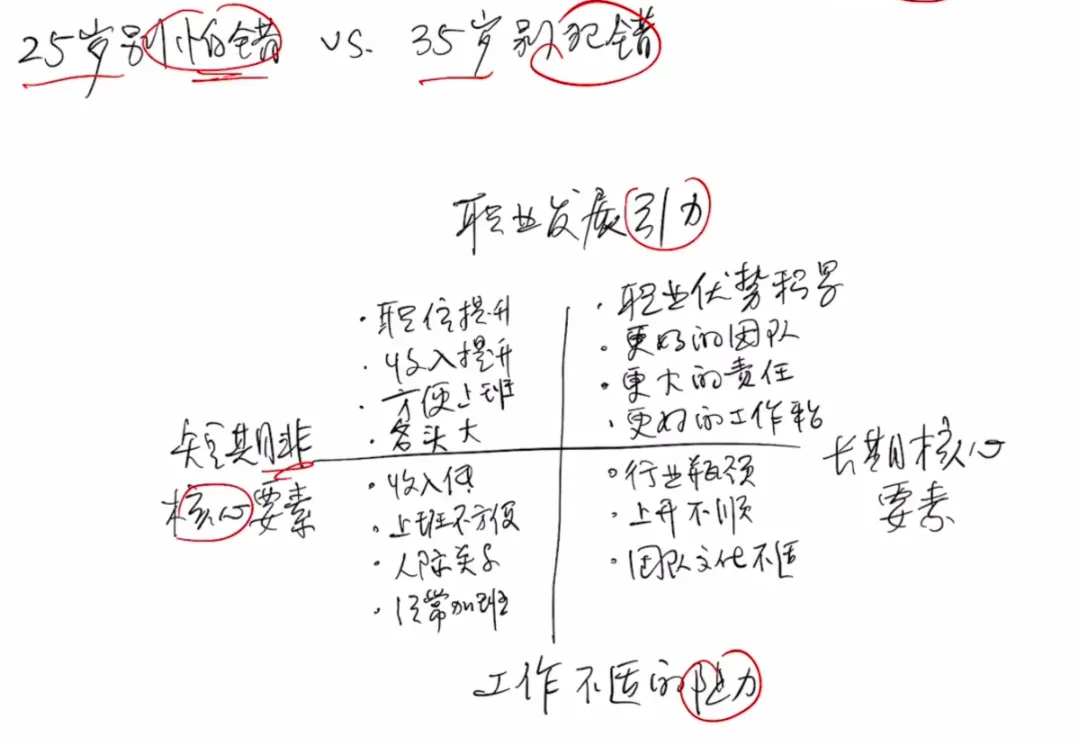 25岁别怕错 vs. 35岁别犯错
职业发展引力
·职位提升
·收入提升
·方便上班
·名头大
·职业优势积累
·更好的团队
·更大的责任
·更好的工作
短期非
核心要素
长期核心
要素
·收入低
·上班不方便
·人际关系
·经常加班
·行业瓶颈
·上升不顺
·团队文化不适
工作不适的阻力